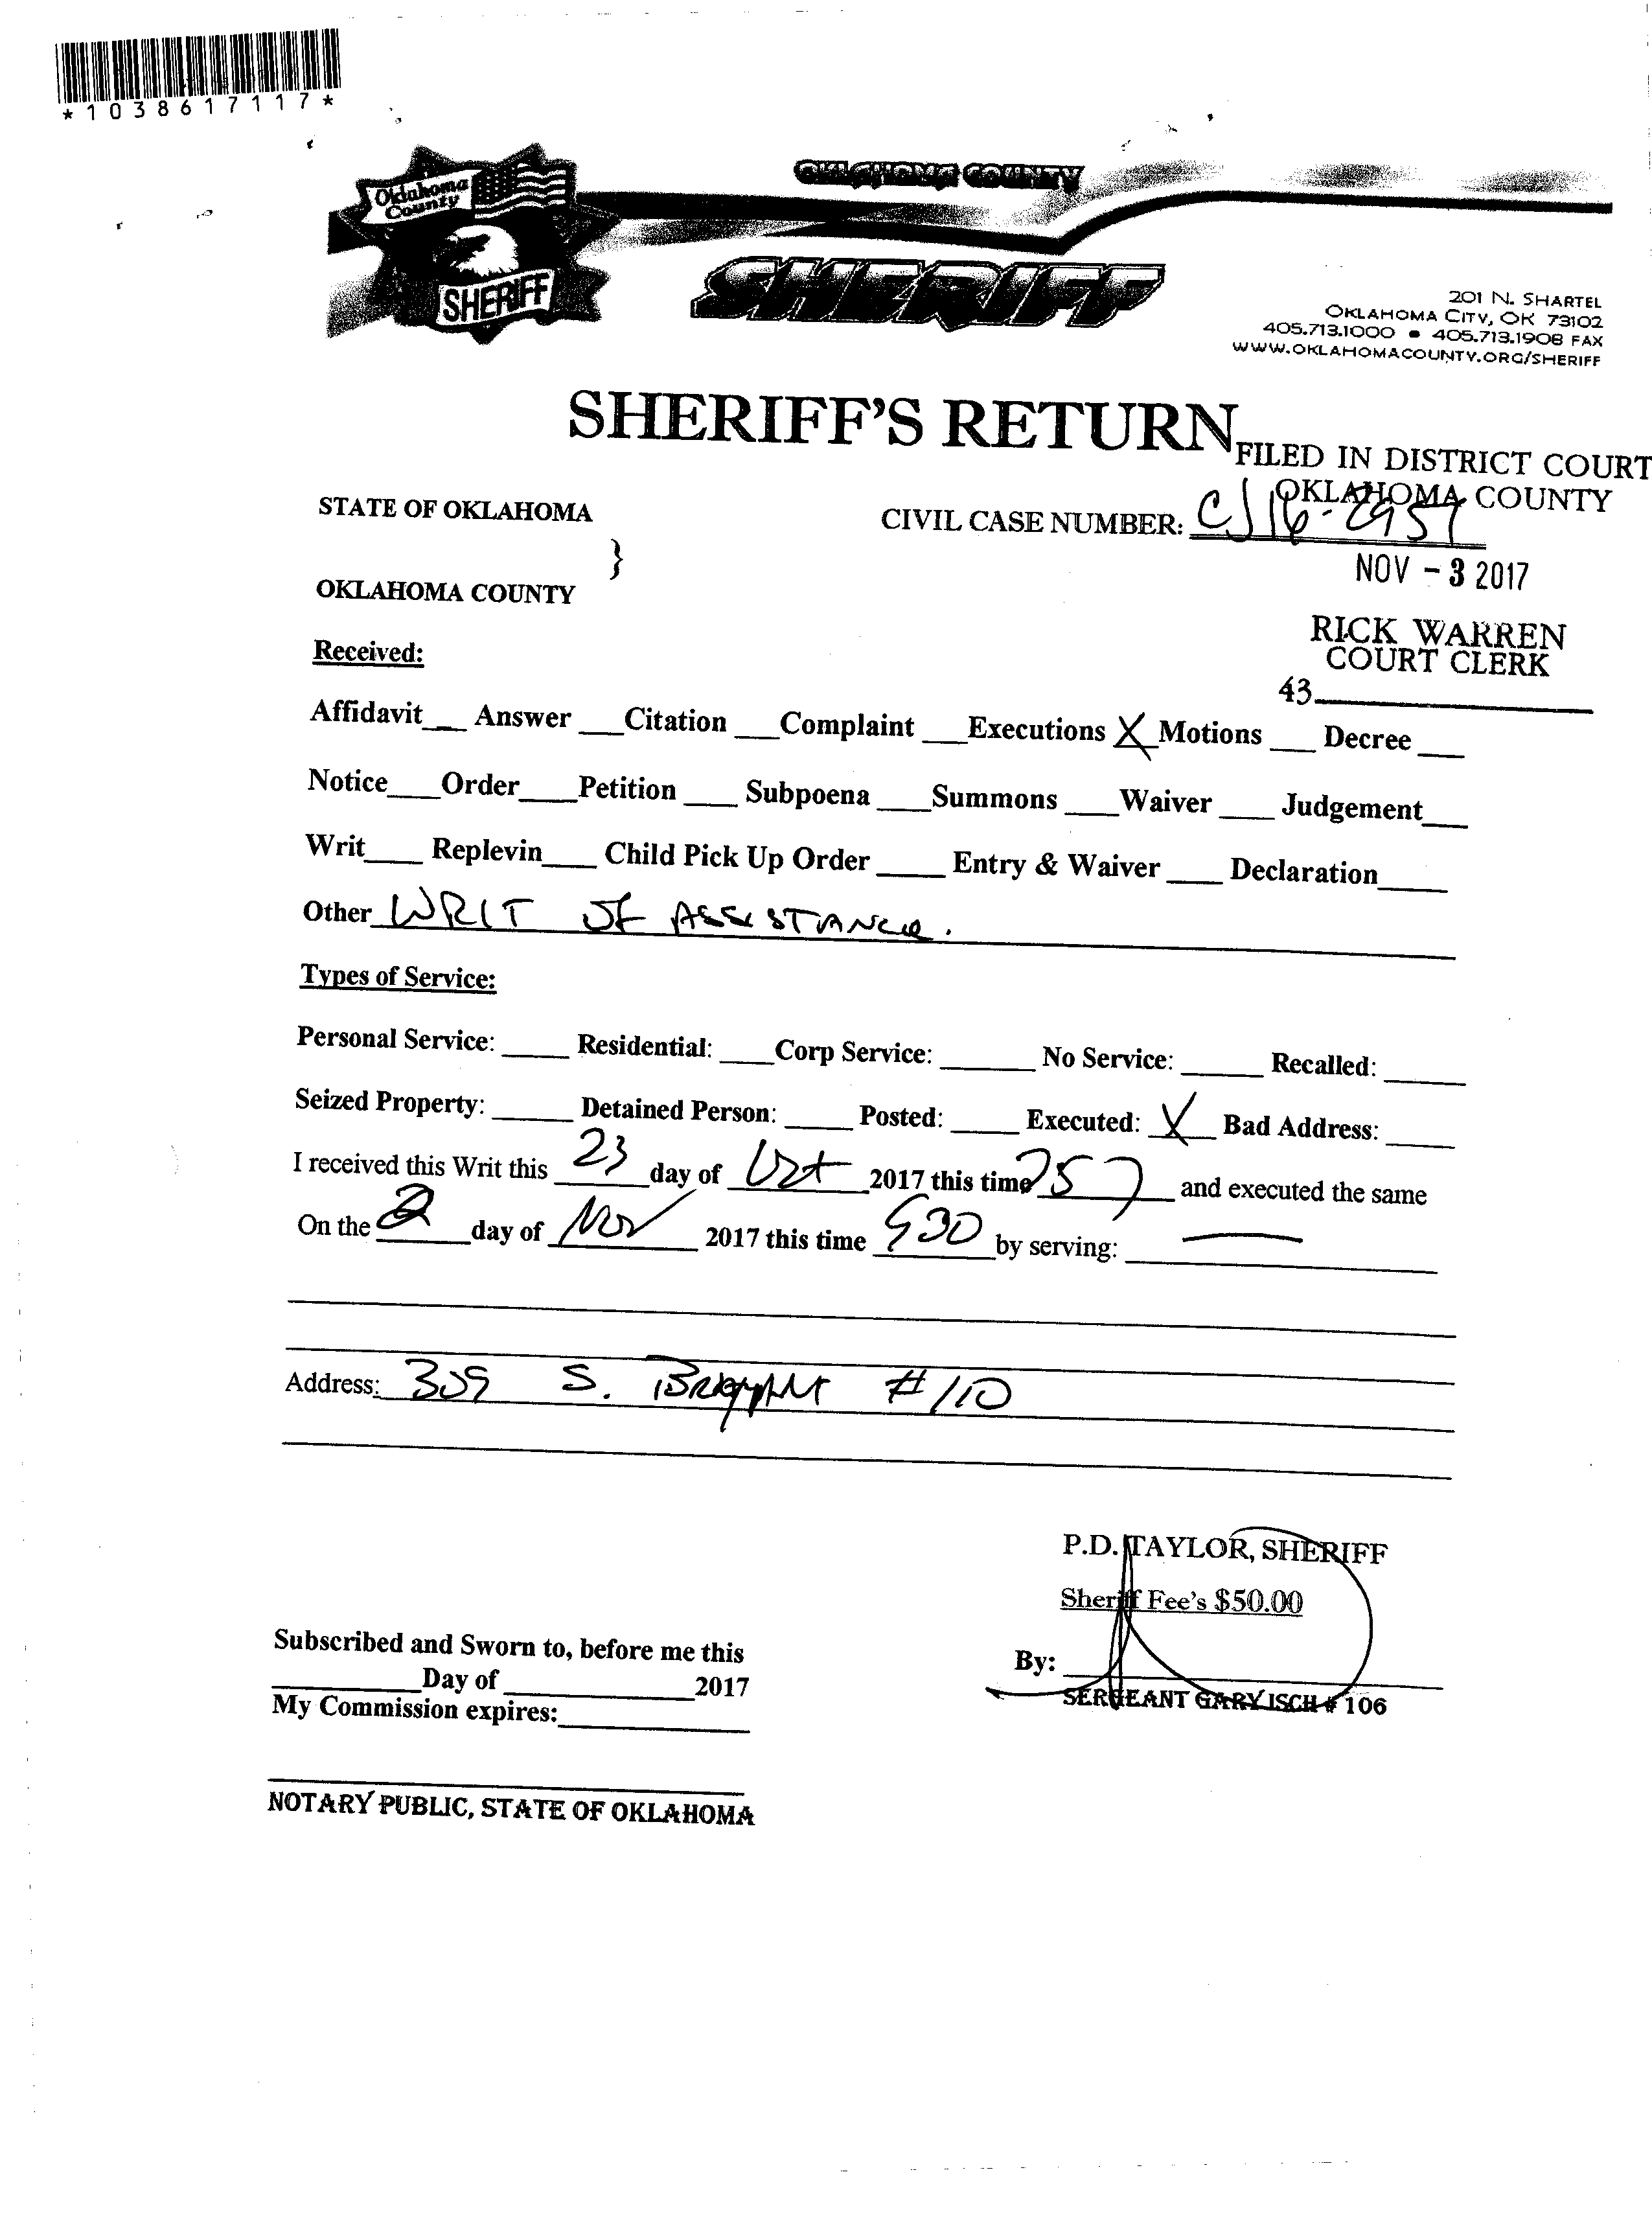 *1038617117*
OKLAHOMA COUNTY
Oklahoma
County
SHERIFF
SHERIFF
201 N. SHARTEL
OKLAHOMA CITY, OK 73102
405.713.1000 • 405.713.1908 FAX
WWW.OKLAHOMACOUNTY.ORG/SHERIFF
SHERIFF'S RETURN
FILED IN DISTRICT COURT
OKLAHOMA COUNTY
STATE OF OKLAHOMA
CIVIL CASE NUMBER: CJ16-2957
}
NOV - 3 2017
OKLAHOMA COUNTY
RICK WARREN
COURT CLERK
43____
Received:
Affidavit__ Answer ___Citation ___Complaint ___Executions X Motions ___ Decree ___
Notice___Order___Petition ___ Subpoena ___Summons ___Waiver ___ Judgement___
Writ___ Replevin___ Child Pick Up Order ____ Entry & Waiver ___ Declaration____
Other WRIT OF ASSISTANCE.
Types of Service:
Personal Service: ____ Residential: ___Corp Service: _____ No Service: _____ Recalled: _____
Seized Property: _____ Detained Person: ____ Posted: ____ Executed: X Bad Address: ____
I received this Writ this 23 day of Oct 2017 this time 757 and executed the same
On the 2 day of Nov 2017 this time 930 by serving: —
Address: 309 S. BRYANT #110
P.D. TAYLOR, SHERIFF
Sheriff Fee's $50.00
Subscribed and Sworn to, before me this
By: ____
________Day of __________2017
SERGEANT GARY ISCH # 106
My Commission expires:__________
NOTARY PUBLIC, STATE OF OKLAHOMA